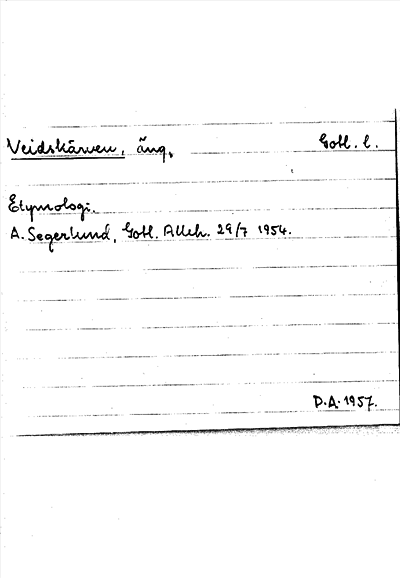 Veidskärven, äng, Gotl. l.
Etymologi.
A. Segerlund, Gotl. Alleh. 29/7 1954.
D.A. 1957.